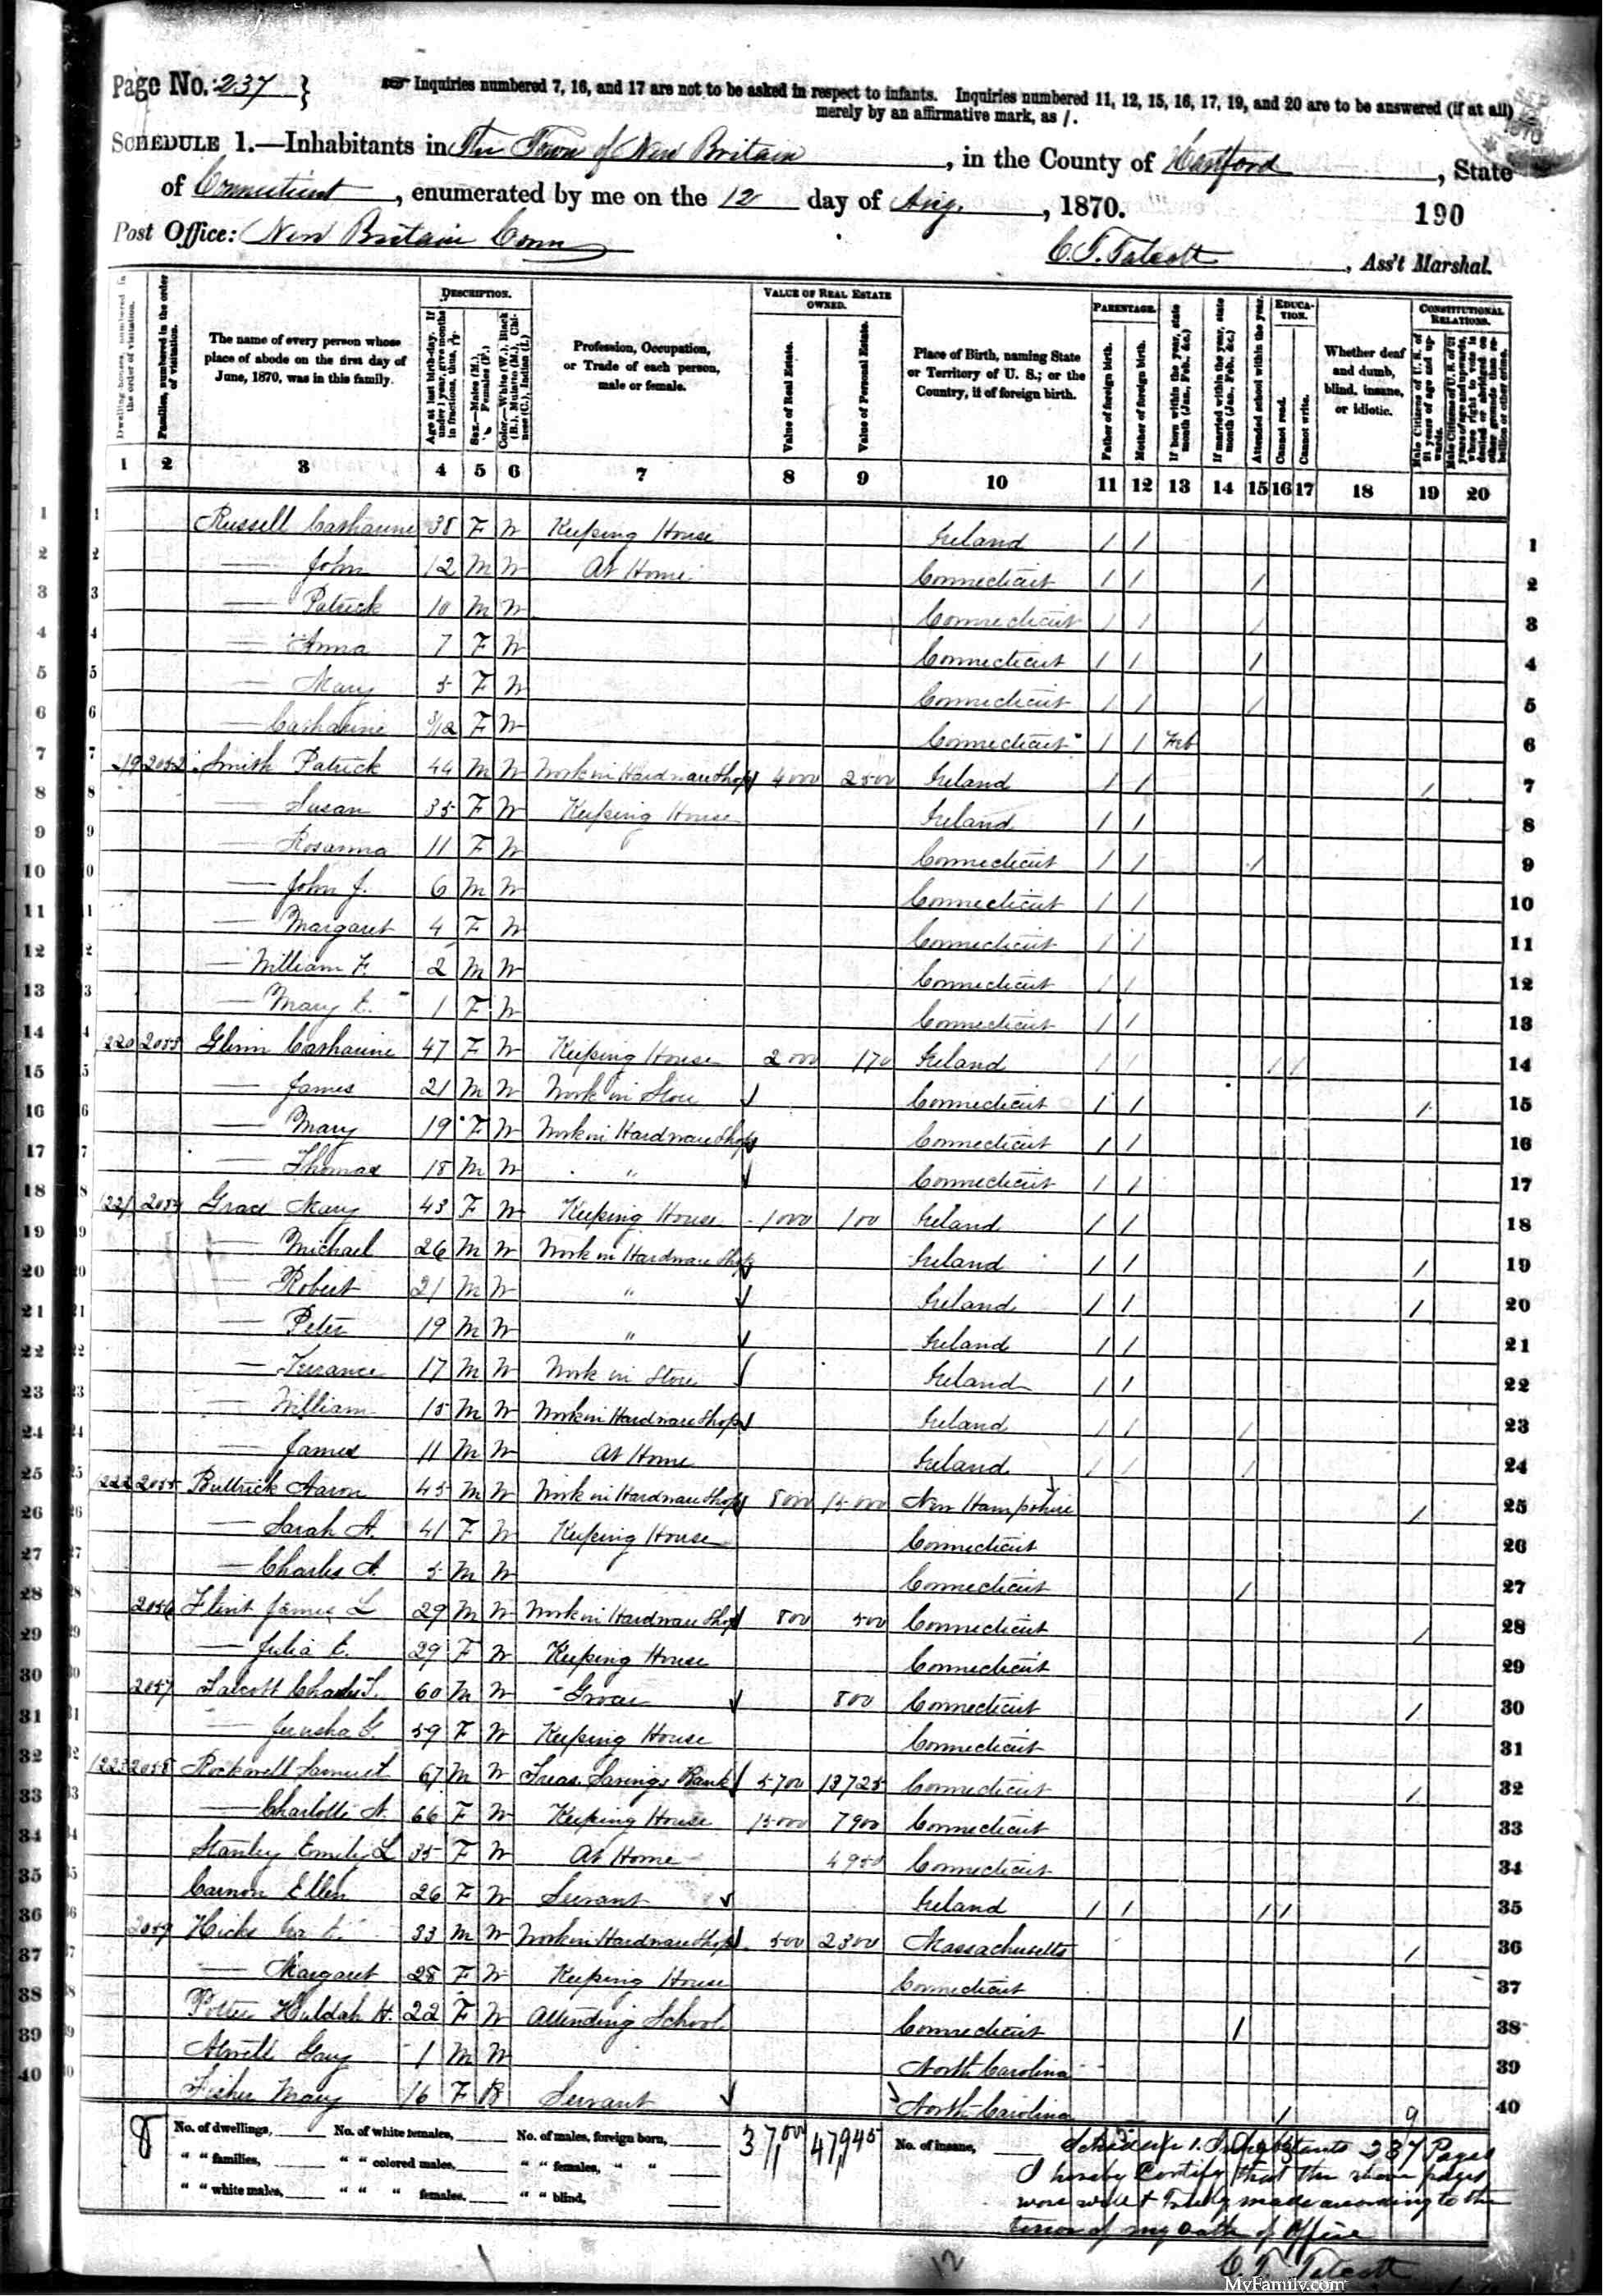 Page No. 237
Inquiries numbered 7, 16, and 17 are not to be asked in respect to infants. Inquiries numbered 11, 12, 15, 16, 17, 19, and 20 are to be answered (if at all)
merely by an affirmative mark, as /.
SCHEDULE 1.—Inhabitants in The Town of New Britain, in the County of Hartford, State
of Connecticut, enumerated by me on the 12 day of Aug., 1870.
190
Post Office: New Britain Conn
C. T. Talcott, Ass't Marshal.
Dwelling-houses, numbered in the order of visitation.
Families, numbered in the order of visitation.
The name of every person whose place of abode on the first day of June, 1870, was in this family.
DESCRIPTION.
Age at last birth-day. If under 1 year, give months in fractions, thus,
Sex.—Males (M.), Females (F.)
Color.—White (W.), Black (B.), Mulatto (M.), Chinese (C.), Indian (I.)
Profession, Occupation, or Trade of each person, male or female.
VALUE OF REAL ESTATE OWNED.
Value of Real Estate.
Value of Personal Estate.
Place of Birth, naming State or Territory of U. S.; or the Country, if of foreign birth.
PARENTAGE.
Father of foreign birth.
Mother of foreign birth.
If born within the year, state month (Jan., Feb., &c.)
If married within the year, state month (Jan., Feb., &c.)
Attended school within the year.
EDUCATION.
Cannot read.
Cannot write.
Whether deaf and dumb, blind, insane, or idiotic.
CONSTITUTIONAL RELATIONS.
Male Citizens of U. S. of 21 years of age and upwards.
Male Citizens of U. S. of 21 years of age and upwards, whose right to vote is denied or abridged on other grounds than rebellion or other crime.
1 2 3 4 5 6 7 8 9 10 11 12 13 14 15 16 17 18 19 20
1 Russell Catharine 38 F W Keeping House Ireland / / 1
2 — John 12 M W At Home Connecticut / / / 2
3 — Patrick 10 M W Connecticut / / / 3
4 — Anna 7 F W Connecticut / / / 4
5 — Mary 5 F W Connecticut / / / 5
6 — Catharine F W Connecticut / / Feb 6
7 2052 Smith Patrick 44 M W Work in Hardware Shop 4000 2500 Ireland / / / 7
8 — Susan 35 F W Keeping House Ireland / / 8
9 — Rosanna 11 F W Connecticut / / / 9
10 — John J. 6 M W Connecticut / / 10
11 — Margaret 4 F W Connecticut / / 11
12 — William F. 2 M W Connecticut / / 12
13 — Mary E. 1 F W Connecticut / / 13
14 2053 Glinn Catharine 47 F W Keeping House 2000 170 Ireland / / / / 14
15 — James 21 M W Work in Store Connecticut / / / 15
16 — Mary 19 F W Work in Hardware Shop Connecticut / / 16
17 — Thomas 18 M W " Connecticut / / 17
18 1221 2054 Grace Mary 43 F W Keeping House 1000 100 Ireland / / 18
19 — Michael 26 M W Work in Hardware Shop Ireland / / / 19
20 — Robert 21 M W " Ireland / / / 20
21 — Peter 19 M W " Ireland / / 21
22 — Terrance 17 M W Work in Store Ireland / / 22
23 — William 15 M W Work in Hardware Shop Ireland / / / 23
24 — James 11 M W At Home Ireland / / / 24
25 1222 2055 Buttrick Aaron 45 M W Work in Hardware Shop 8000 15000 New Hampshire / 25
26 — Sarah A. 41 F W Keeping House Connecticut 26
27 — Charles A. 5 M W Connecticut / 27
28 2056 Flint James L 29 M W Work in Hardware Shop 800 500 Connecticut / 28
29 — Julia E. 29 F W Keeping House Connecticut 29
30 2057 Talcott Charles T. 60 M W Grocer 800 Connecticut / 30
31 — Jerusha G. 59 F W Keeping House Connecticut 31
32 1223 2058 Rockwell Samuel 67 M W Treas. Savings Bank 5700 13725 Connecticut / 32
33 — Charlotte N. 66 F W Keeping House 15000 7900 Connecticut 33
34 Stanley Emily L 35 F W At Home 4950 Connecticut 34
35 Carnon Ellen 26 F W Servant Ireland / / / / 35
36 2059 Hicks E. 33 M W Work in Hardware Shop 500 2300 Massachusetts / 36
37 — Margaret 28 F W Keeping House Connecticut 37
38 Potter Huldah H. 22 F W Attending School Connecticut / 38
39 Atwell 1 M W North Carolina 39
40 Fisher Mary 16 F B Servant North Carolina 40
8 No. of dwellings, No. of white females, No. of males, foreign born, 47,945 No. of insane, 9
" " families, " " colored males, " " females, " "
" " white males, " " " females, " " blind,
Schedule 1. Inhabitants 237 Pages
I hereby Certify that the above pages
were well & Truly made according to the
tenor of my oath of office
C. T. Talcott
12
MyFamily.com